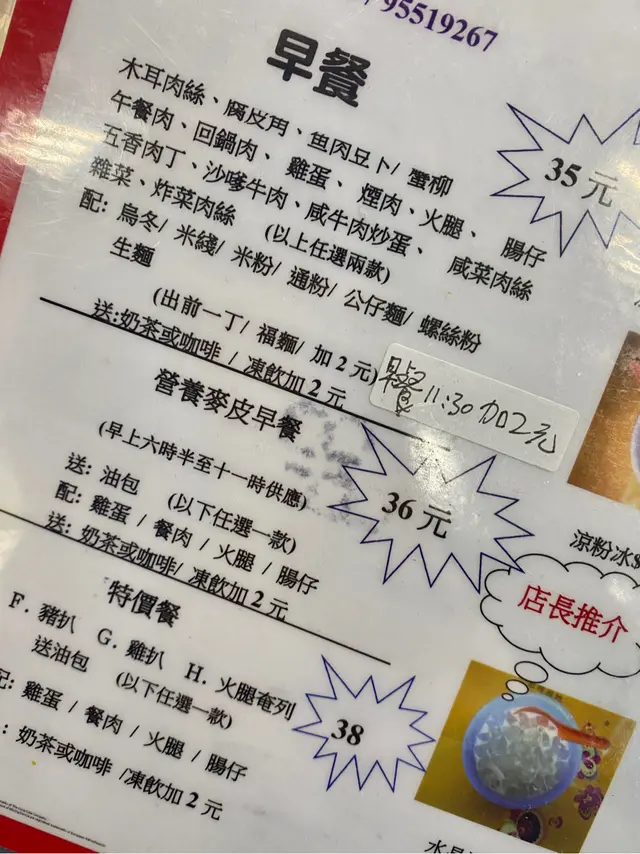 95519267
早餐
木耳肉絲、腐皮角、魚肉豆卜/ 蟹柳
午餐肉、回鍋肉、 雞蛋、 煙肉、火腿、 腸仔
五香肉丁、沙嗲牛肉、咸牛肉炒蛋、 咸菜肉絲
雜菜、炸菜肉絲 (以上任選兩款)
35 元
配: 烏冬/ 米綫/ 米粉/ 通粉/ 公仔麵/ 螺絲粉
生麵
(出前一丁/ 福麵/ 加 2 元)
送:奶茶或咖啡 / 凍飲加 2 元
早餐 11:30 加2元
營養麥皮早餐
(早上六時半至十一時供應)
送: 油包 (以下任選一款)
配: 雞蛋 / 餐肉 / 火腿 / 腸仔
送: 奶茶或咖啡/ 凍飲加 2 元
36 元
特價餐
F. 豬扒 G. 雞扒 H. 火腿奄列
送油包 (以下任選一款)
配: 雞蛋 / 餐肉 / 火腿 / 腸仔
: 奶茶或咖啡 /凍飲加 2 元
38
涼粉冰$
店長推介
水晶